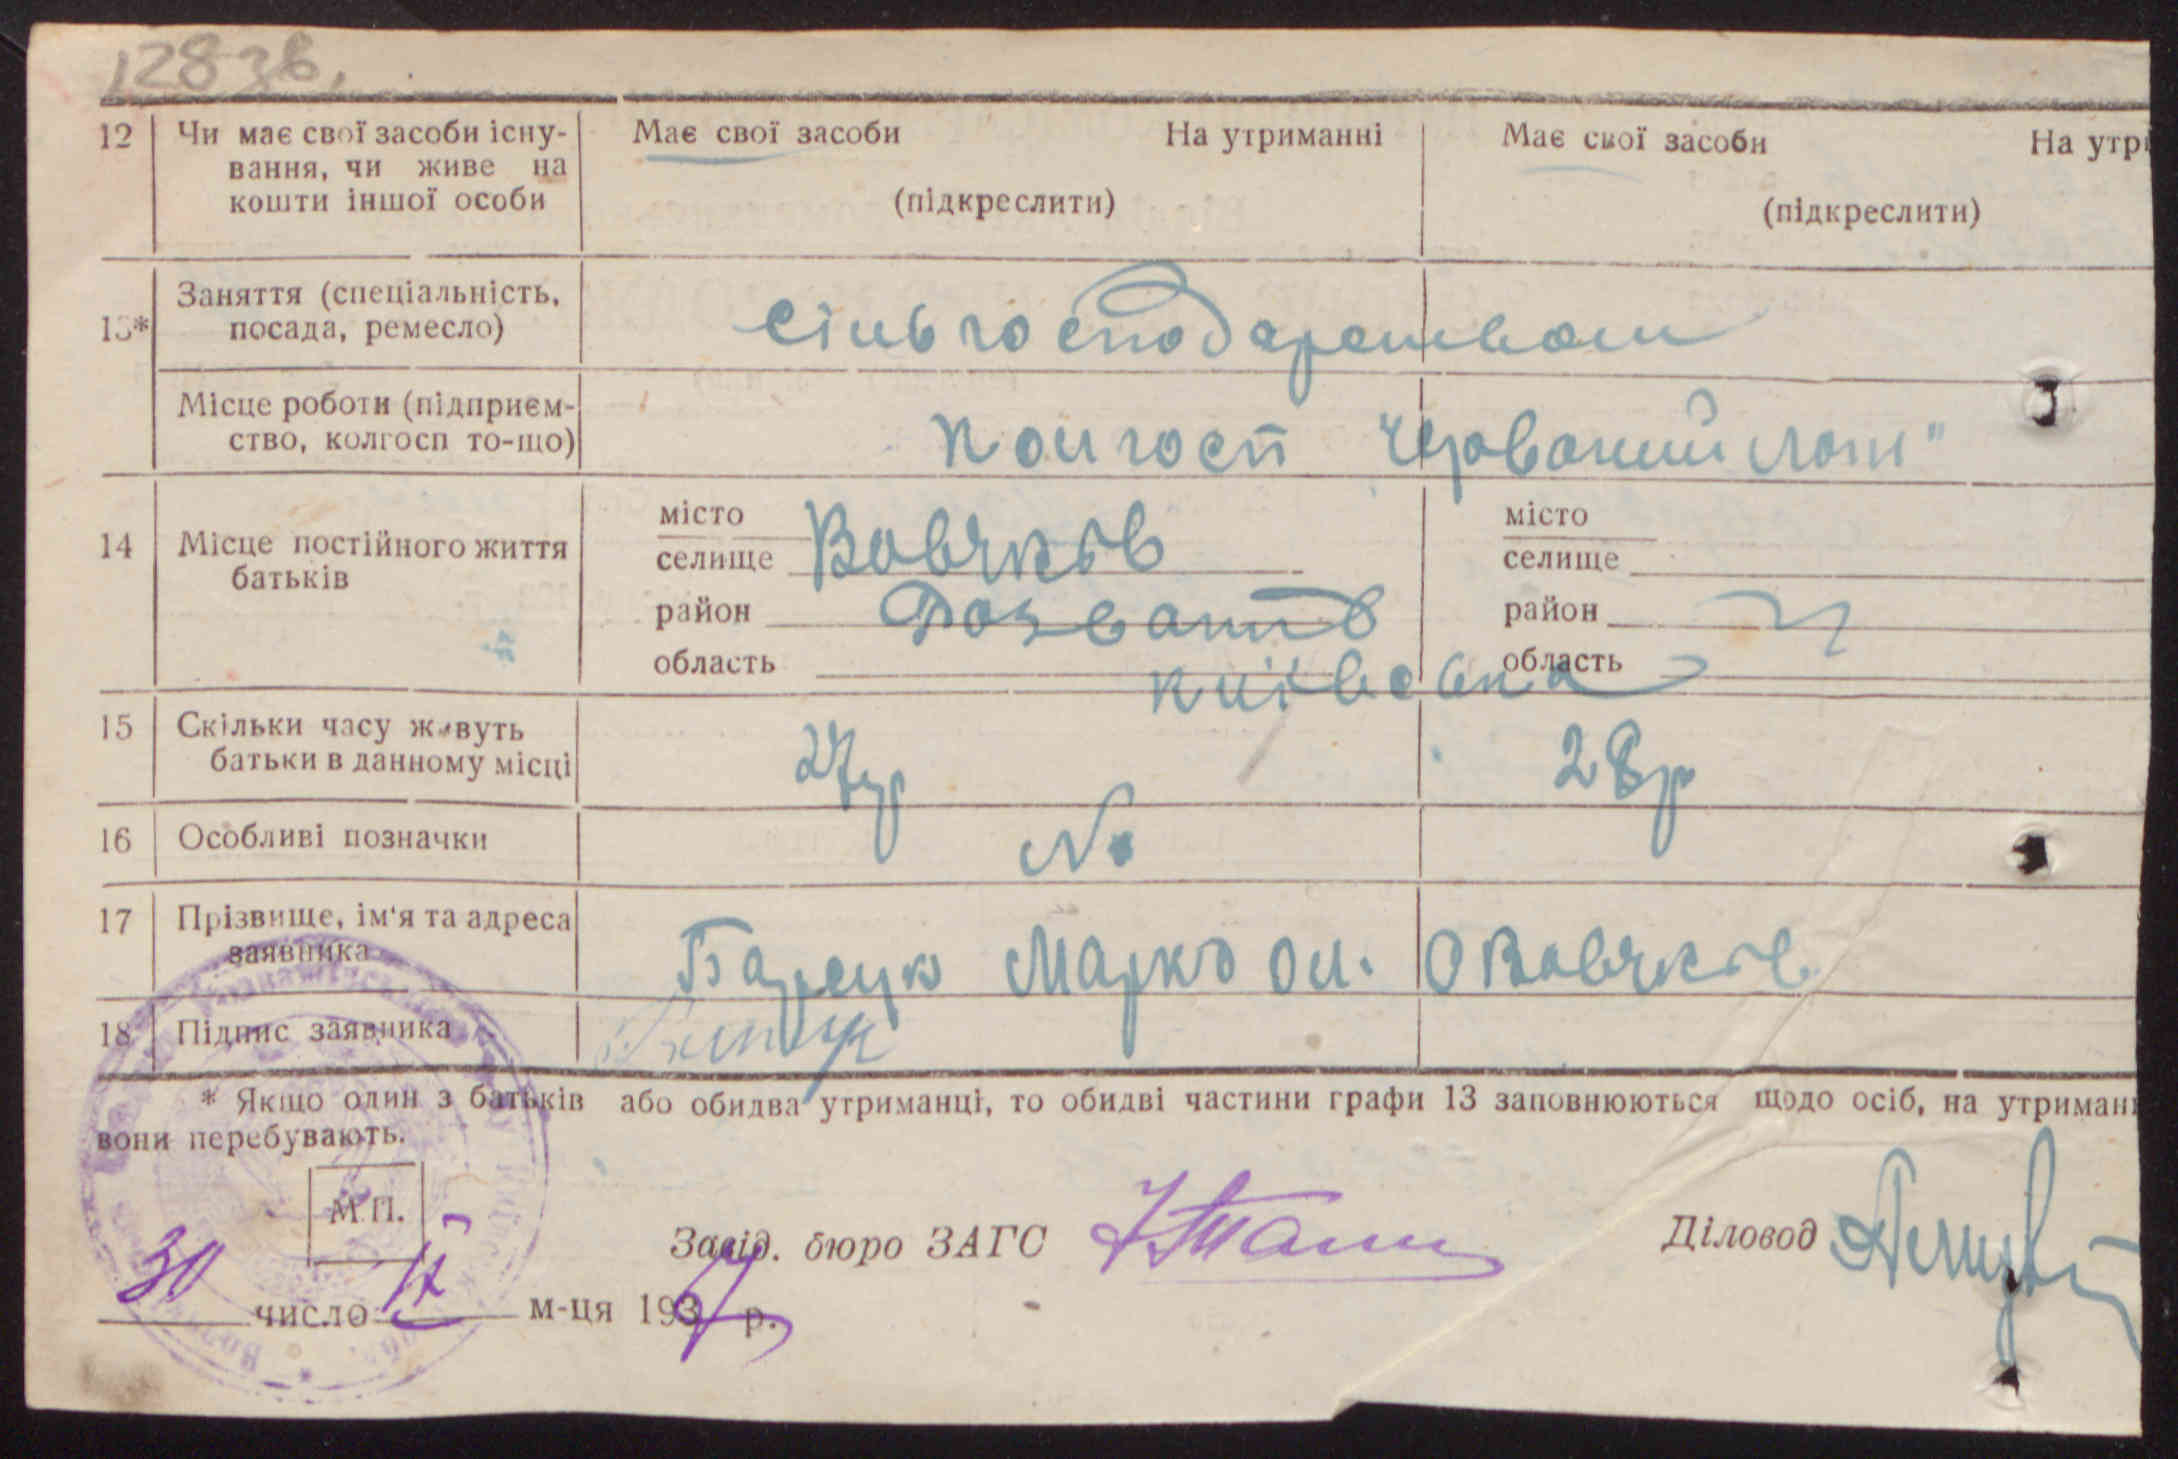 12838.
12 Чи має свої засоби існу- Має свої засоби На утриманні Має свої засоби На утри
вання, чи живе на
кошти іншої особи (підкреслити) (підкреслити)
13* Заняття (спеціальність,
посада, ремесло) сільгосподарством
Місце роботи (підприєм-
ство, колгосп то-що) Колгосп Червоний лан"
14 Місце постійного життя
батьків
місто місто
селище Вовчків селище
район район
область Київська область
15 Скільки часу живуть 27р 28р
батьки в данному місці
16 Особливі позначки
17 Прізвище, ім'я та адреса
заявника Марко Ол. с Вовчків
18 Підпис заявника
* Якщо один з батьків або обидва утриманці, то обидві частини графи 13 заповнюються щодо осіб, на утриманн
вони перебувають.
М.П.
Завід. бюро ЗАГС Діловод
30 число IX м-ця 1937 р.